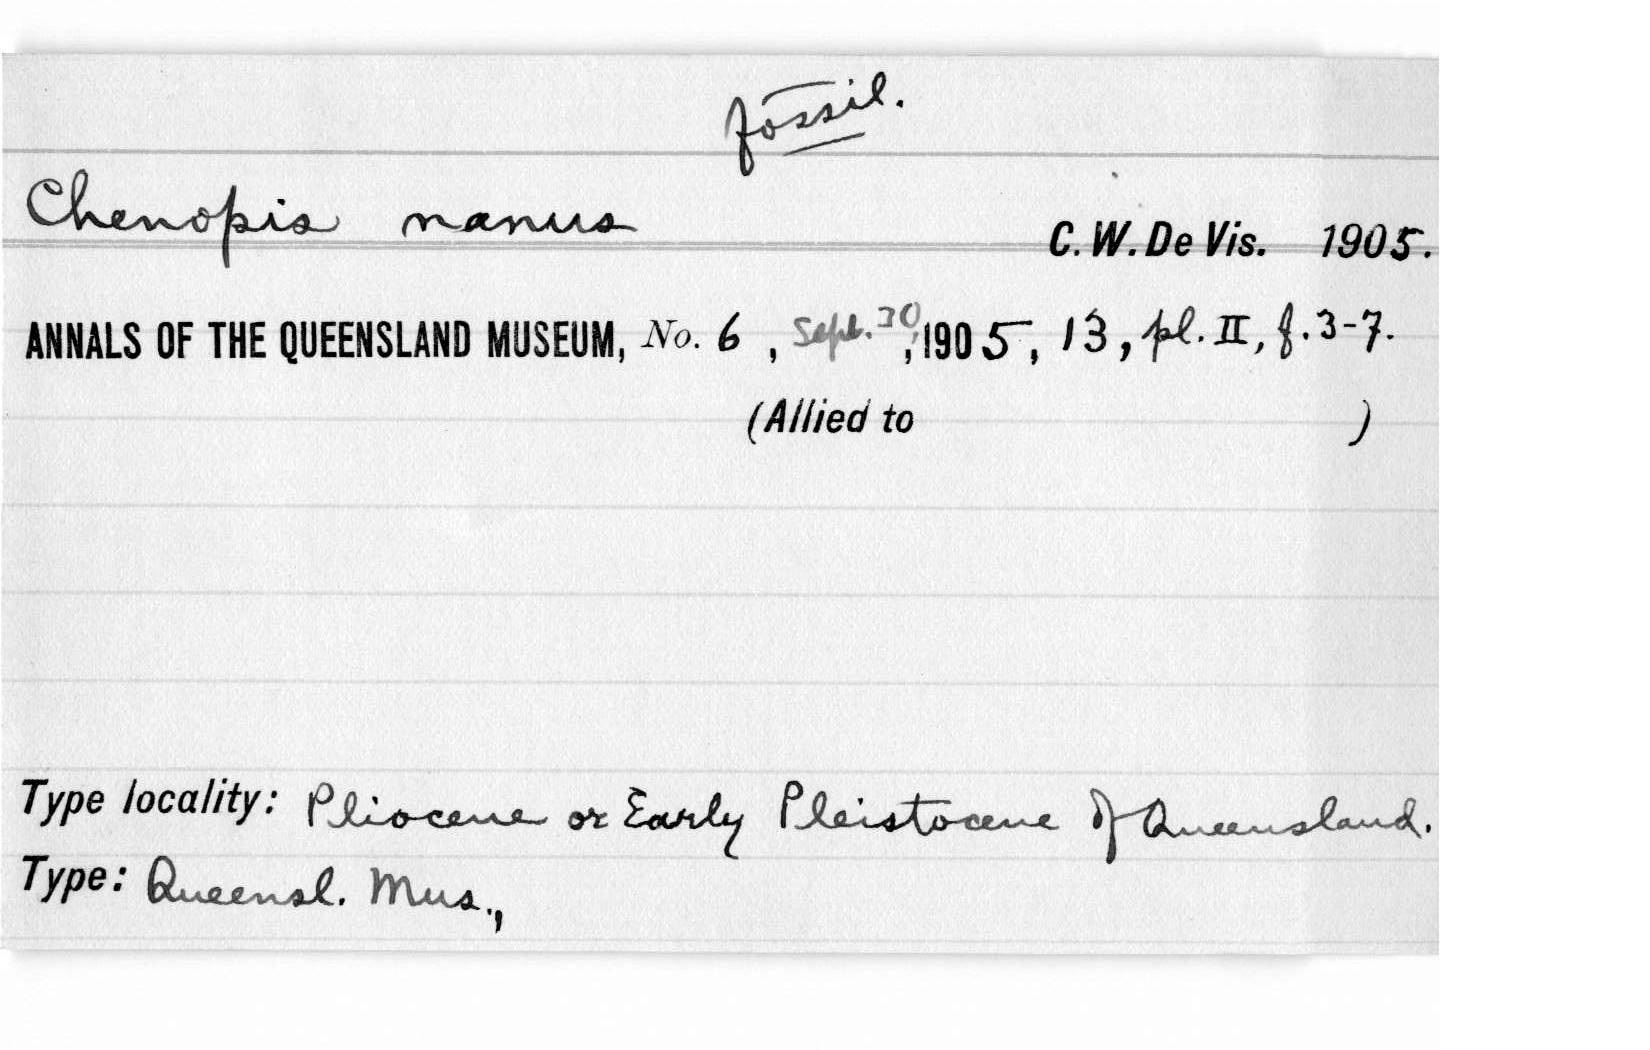 fossil.
Chenopis nanus C. W. De Vis. 1905.
ANNALS OF THE QUEENSLAND MUSEUM, No. 6 , Sept. 30, ,1905, 13, pl. II, f. 3-7.
(Allied to )
Type locality: Pliocene or Early Pleistocene of Queensland.
Type: Queensl. Mus.,